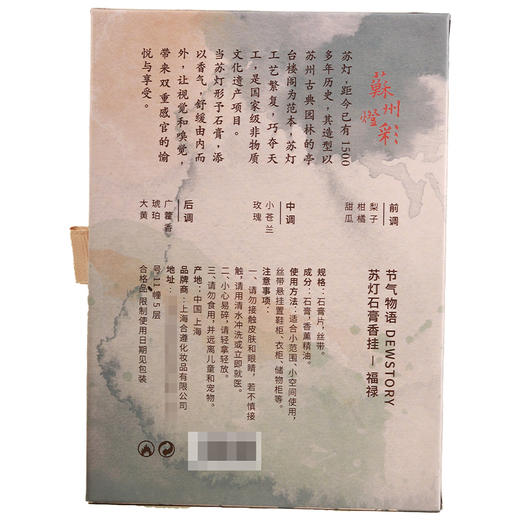 蘇州燈彩
苏灯，距今已有 1500
多年历史，其造型以
苏州古典园林的亭
台楼阁为范本，苏灯
工艺繁复，巧夺天
工，是国家级非物质
文化遗产项目。
当苏灯形予石膏，添
以香气，舒缓由内而
外，让视觉和嗅觉，
带来双重感官的愉
悦与享受。
前调
梨子
柑橘
甜瓜
中调
小苍兰
玫瑰
后调
广藿香
琥珀
大黄
节气物语 DEWSTORY
苏灯石膏香挂 — 福禄
规格：石膏片，丝带。
成分：石膏，香薰精油。
使用方法：适合小范围、小空间使用，
丝带悬挂置鞋柜、衣柜、储物柜等。
注意事项：
一、请勿接触皮肤和眼睛，若不慎接
触，请用清水冲洗或立即就医。
二、小心易碎，请轻拿轻放。
三、请勿食用，并远离儿童和宠物。
产地：中国 上海
品牌商：上海合遵化妆品有限公司
地址：
号 11 幢 5 层
合格品 限制使用日期见包装